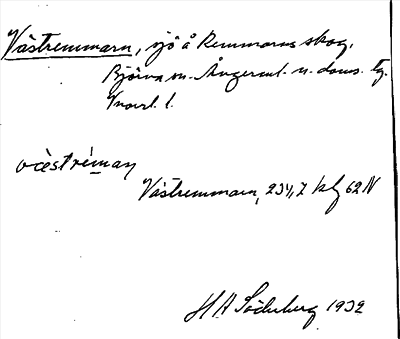 Västremmarn, sjö å Remmarns skog,
Björna sn. Ångerml. n. doms. tg.
Vnorrl. l.
västréman
Västremmarn, 234,7 kbf 62 N
H A Söderberg 1932